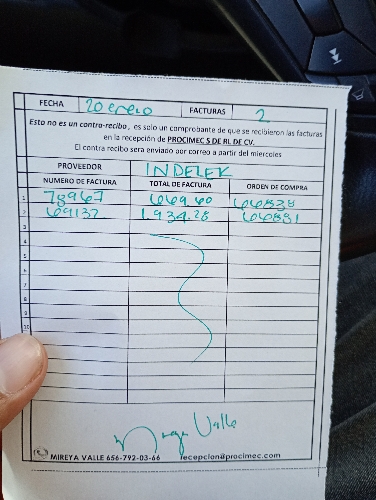 FECHA 20 enero FACTURAS 2
Esto no es un contra-recibo, es solo un comprobante de que se recibieron las facturas
en la recepción de PROCIMEC S DE RL DE CV.
El contra recibo sera enviado por correo a partir del miercoles
PROVEEDOR INDELEK
NUMERO DE FACTURA TOTAL DE FACTURA ORDEN DE COMPRA
1 78967 669.60 66838
2 69132 1934.28 66881
3
4
5
6
7
8
9
10
Mireya Valle
MIREYA VALLE 656-792-03-66 recepcion@procimec.com